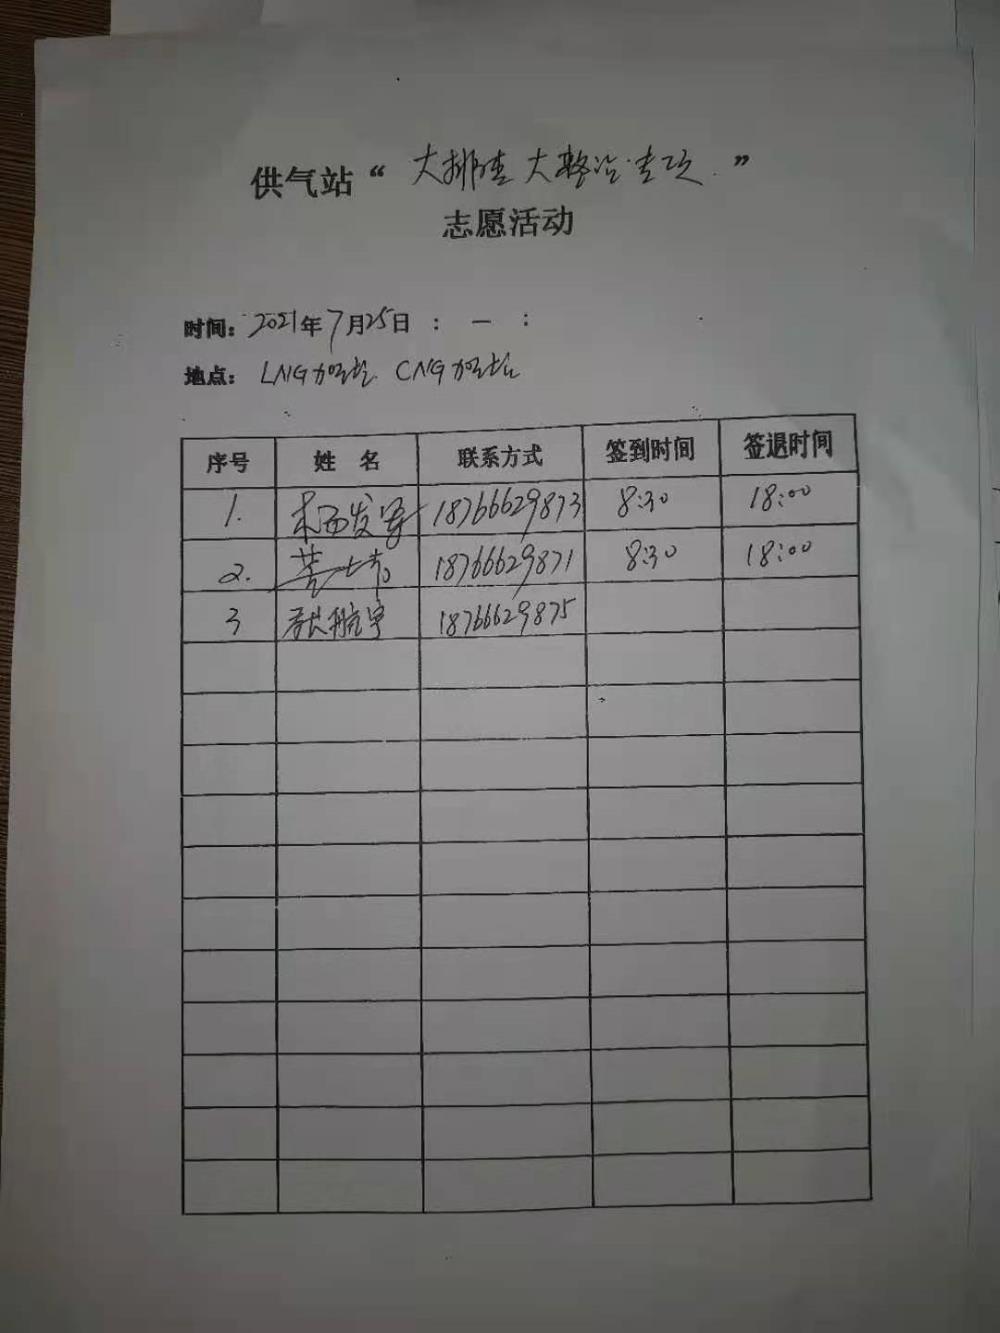 供气站“大排查大整治专项”
志愿活动
时间：2021年7月25日 ： — ：
地点：LNG加气站 CNG加气站
序号 姓 名 联系方式 签到时间 签退时间
1. 杨发军 18766629873 8:30 18:00
2. 18766629871 8:30 18:00
3 张航宇 18766629875